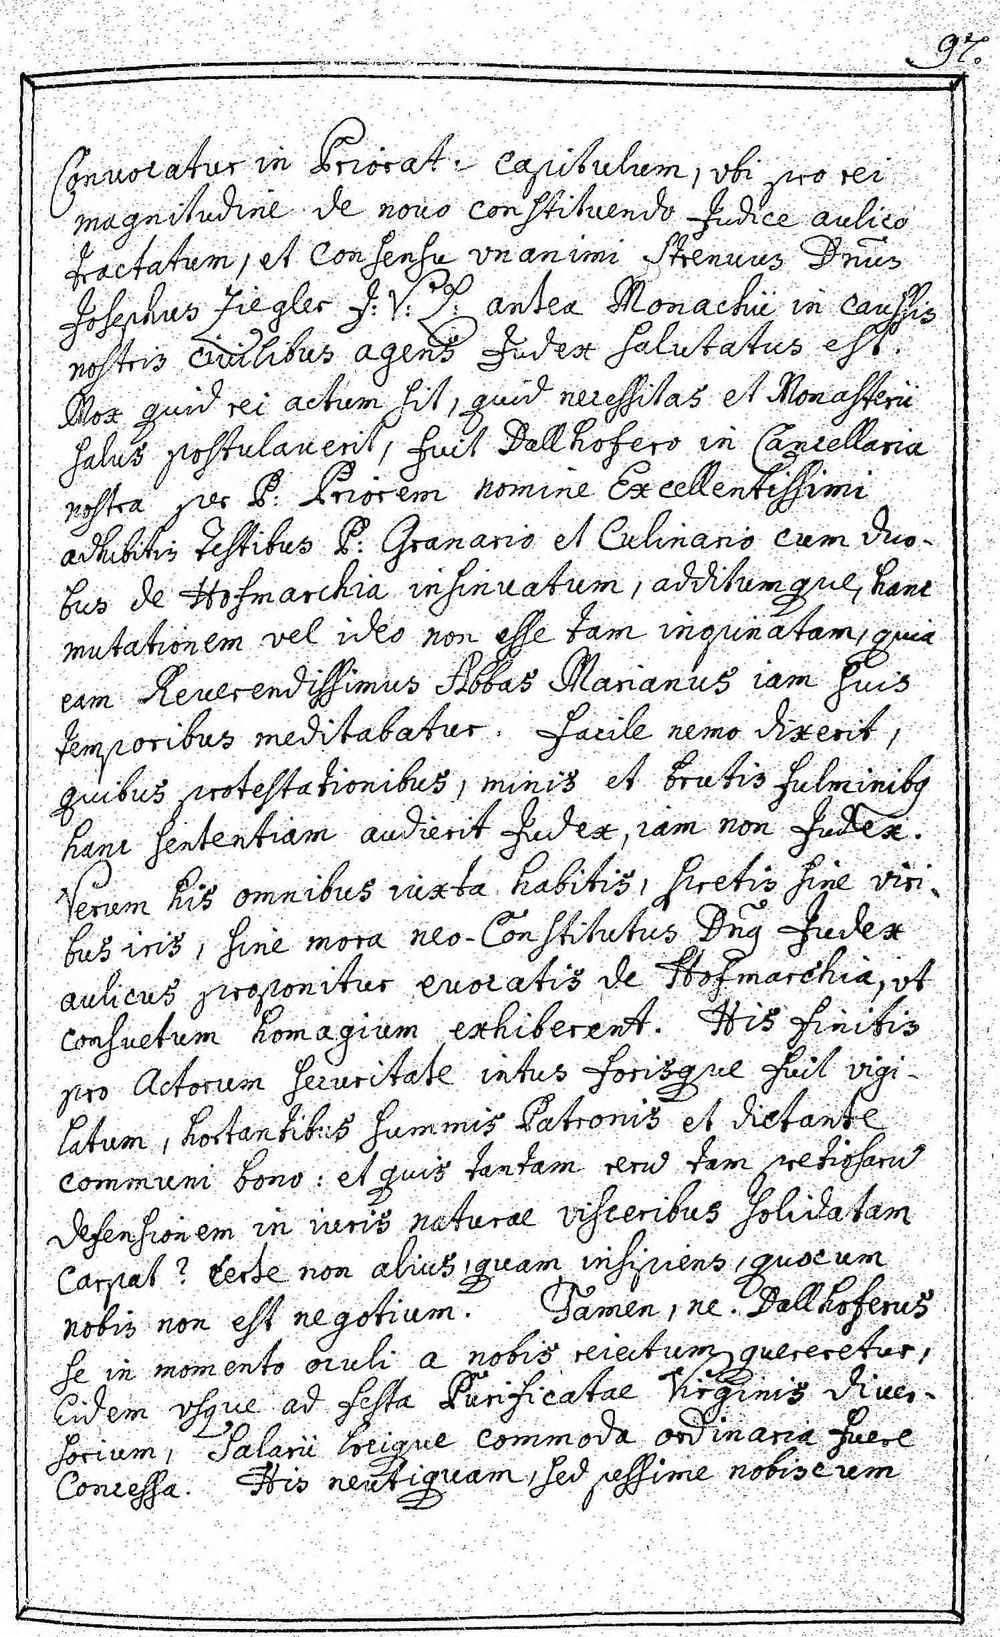 97.
Conuocatur in Priorat: capitulum, vbi pro rei
magnitudine de nouo constituendo Judice aulico
tractatum, et consensu vnanimi Strenuus Dnus
Josephus Ziegler J: V: L: antea Monachii in caussis
nostris ciuilibus agens Judex salutatus est.
Mox quid rei actum sit, quid necessitas et Monasterii
salus postulauerit, fuit Dallhofero in Cancellaria
nostra per P: Priorem nomine Excellentissimi
adhibitis Testibus P: Granario et Culinario cum duo-
bus de Hofmarchia insinuatum, additumque, hanc
mutationem vel ideo non esse tam inopinatam, quia
eam Reuerendissimus Abbas Marianus iam suis
temporibus meditabatur. Facile nemo dixerit,
quibus protestationibus, minis et brutis fulminibq
hanc sententiam audierit Judex, iam non Judex.
Verum his omnibus iuxta habitis, spretis sine viri-
bus iris, sine mora neo-Constitutus Dnq Judex
aulicus proponitur euocatis de Hofmarchia, vt
consuetum homagium exhiberent. His finitis
pro Actorum securitate intus forisque fuit vigi-
latum, hortantibus summis Patronis et dictante
communi bono: et quis tantam rerũ tam pretiosarũ
defensionem in iuris naturae visceribus solidatam
carpat? certe non alius, quam insipiens, quocum
nobis non est negotium. Tamen, ne Dallhoferus
se in momento oculi a nobis reiectum quereretur,
Eidem vsque ad festa Purificatae Virginis diuer-
sorium, Salarii locique commoda ordinaria fuere
Concessa. His neutiquam, sed pessime nobiscum